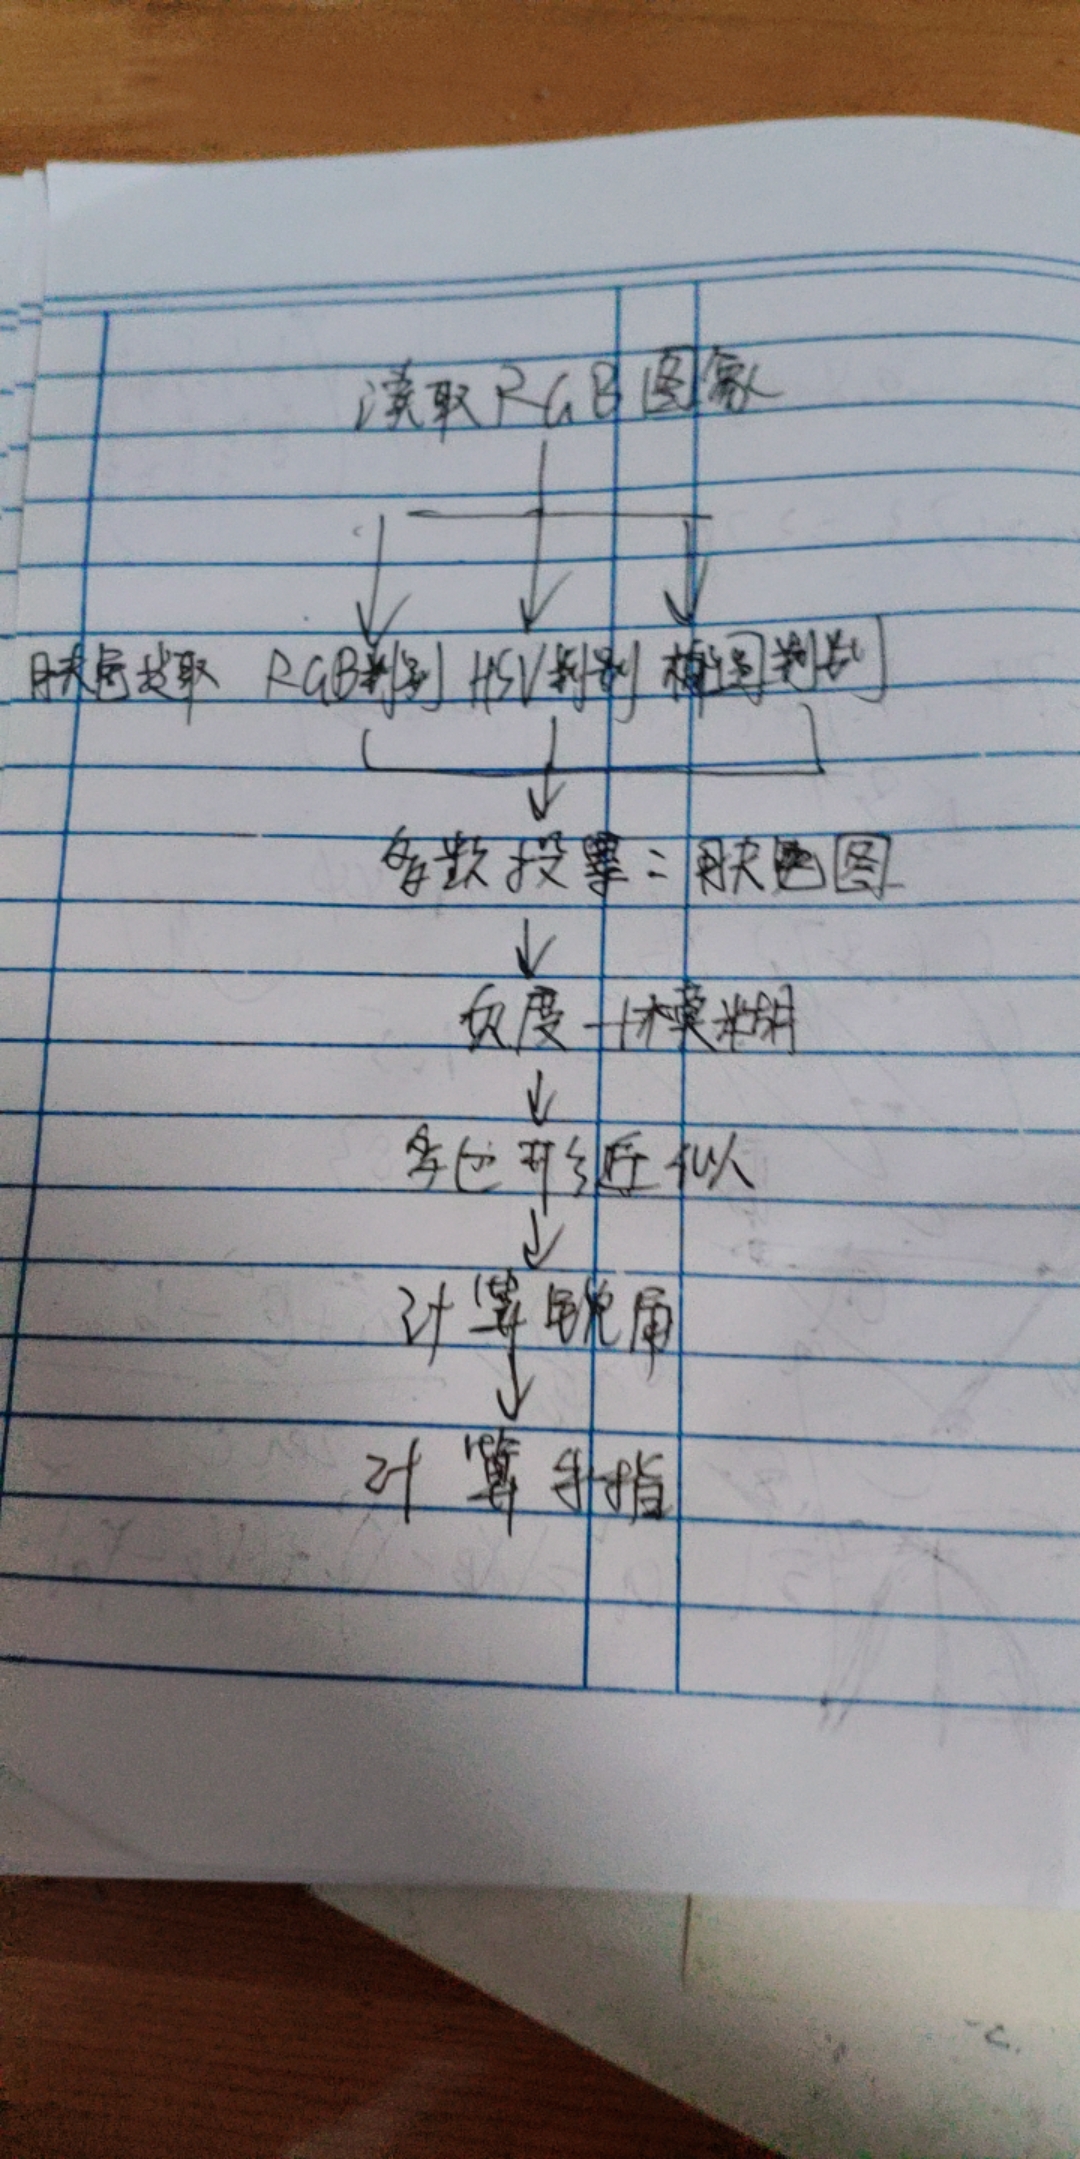 读取RGB图象
肤色提取 RGB判别 HSV判别 椭圆判别
多数投票=肤色图
灰度+模糊
多边形近似
计算锐角
计算手指